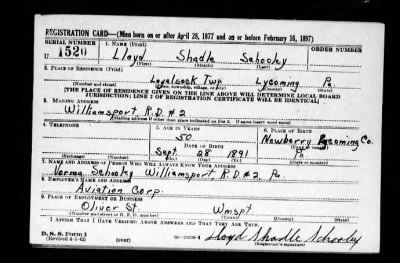 REGISTRATION CARD—(Men born on or after April 28, 1877 and on or before February 16, 1897)
SERIAL NUMBER 1. NAME (Print) ORDER NUMBER
U 1520 Lloyd Shadle Schooley
(First) (Middle) (Last)
2. PLACE OF RESIDENCE (Print)
Loyalsock Twp. Lycoming Pa.
(Number and street) (Town, township, village, or city) (County) (State)
[THE PLACE OF RESIDENCE GIVEN ON THE LINE ABOVE WILL DETERMINE LOCAL BOARD
JURISDICTION; LINE 2 OF REGISTRATION CERTIFICATE WILL BE IDENTICAL]
3. MAILING ADDRESS
Williamsport R.D.#2
[Mailing address if other than place indicated on line 2. If same insert word same]
4. TELEPHONE 5. AGE IN YEARS 6. PLACE OF BIRTH
50 Newberry Lycoming Co.
DATE OF BIRTH (Town or county)
Sept. 28 1891 Pa
(Exchange) (Number) (Mo.) (Day) (Yr.) (State or country)
7. NAME AND ADDRESS OF PERSON WHO WILL ALWAYS KNOW YOUR ADDRESS
Verma Schooley Williamsport R.D.#2 Pa.
8. EMPLOYER'S NAME AND ADDRESS
Aviation Corp.
9. PLACE OF EMPLOYMENT OR BUSINESS
Oliver St. Wmspt.
(Number and street or R. F. D. number) (Town) (County) (State)
I AFFIRM THAT I HAVE VERIFIED ABOVE ANSWERS AND THAT THEY ARE TRUE.
D. S. S. Form 1
(Revised 4-1-42) (over) Lloyd Shadle Schooley
(Registrant's signature)